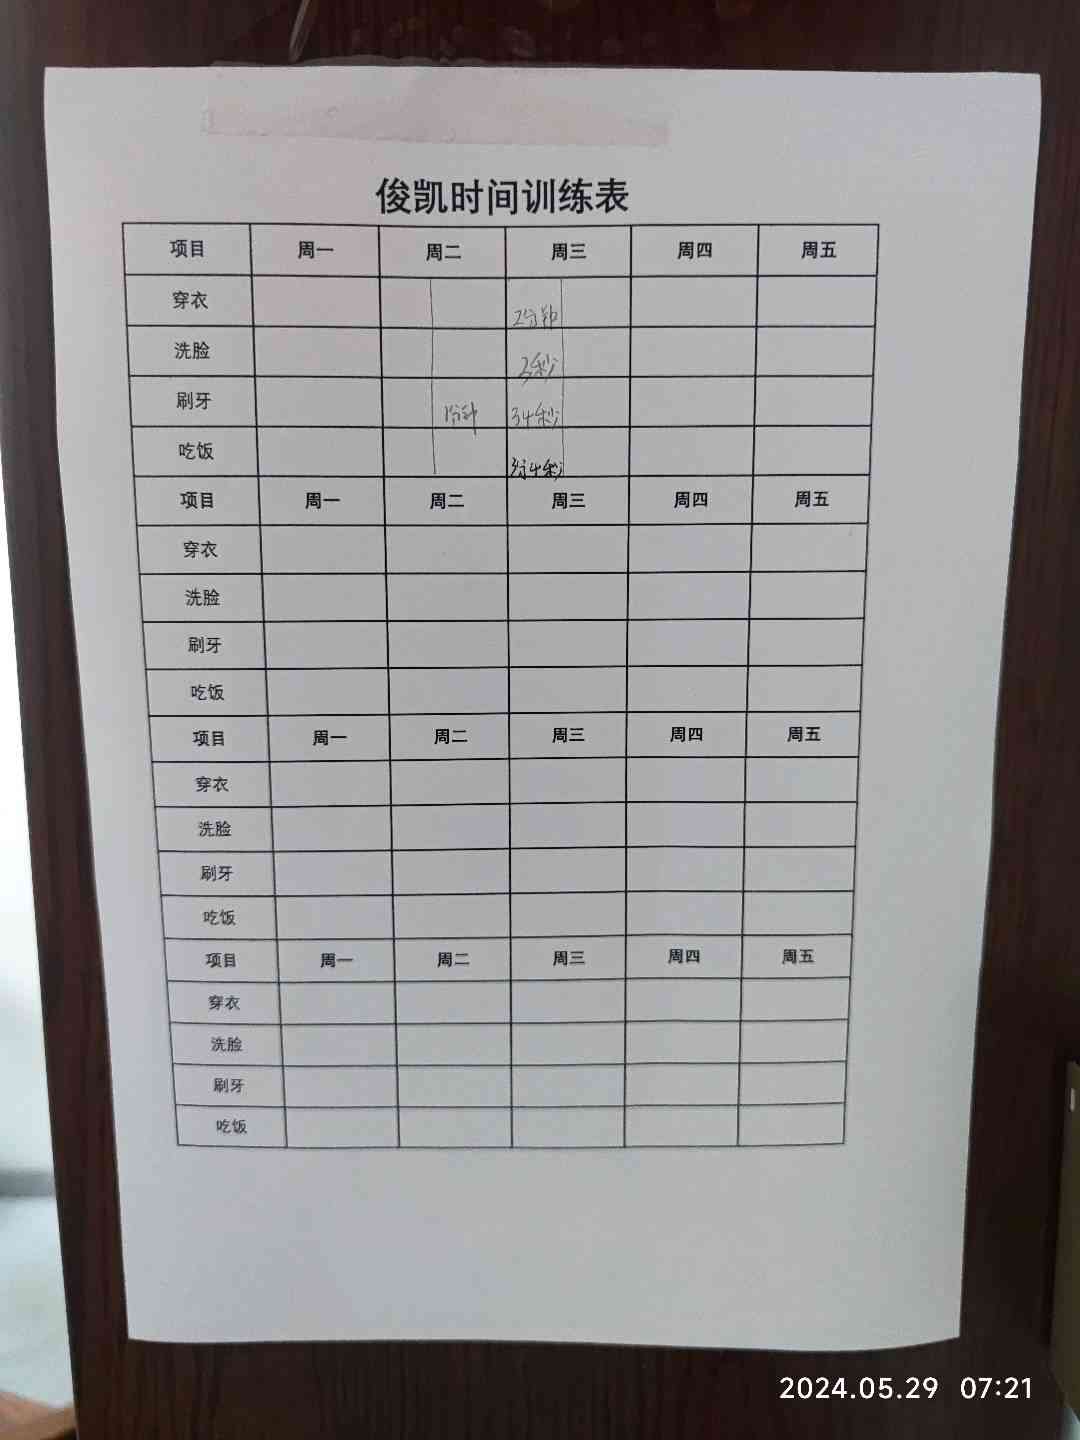 俊凯时间训练表
项目 周一 周二 周三 周四 周五
穿衣 2分钟
洗脸 3秒
刷牙 1分钟 34秒
吃饭 4秒
项目 周一 周二 周三 周四 周五
穿衣
洗脸
刷牙
吃饭
项目 周一 周二 周三 周四 周五
穿衣
洗脸
刷牙
吃饭
项目 周一 周二 周三 周四 周五
穿衣
洗脸
刷牙
吃饭
2024.05.29 07:21